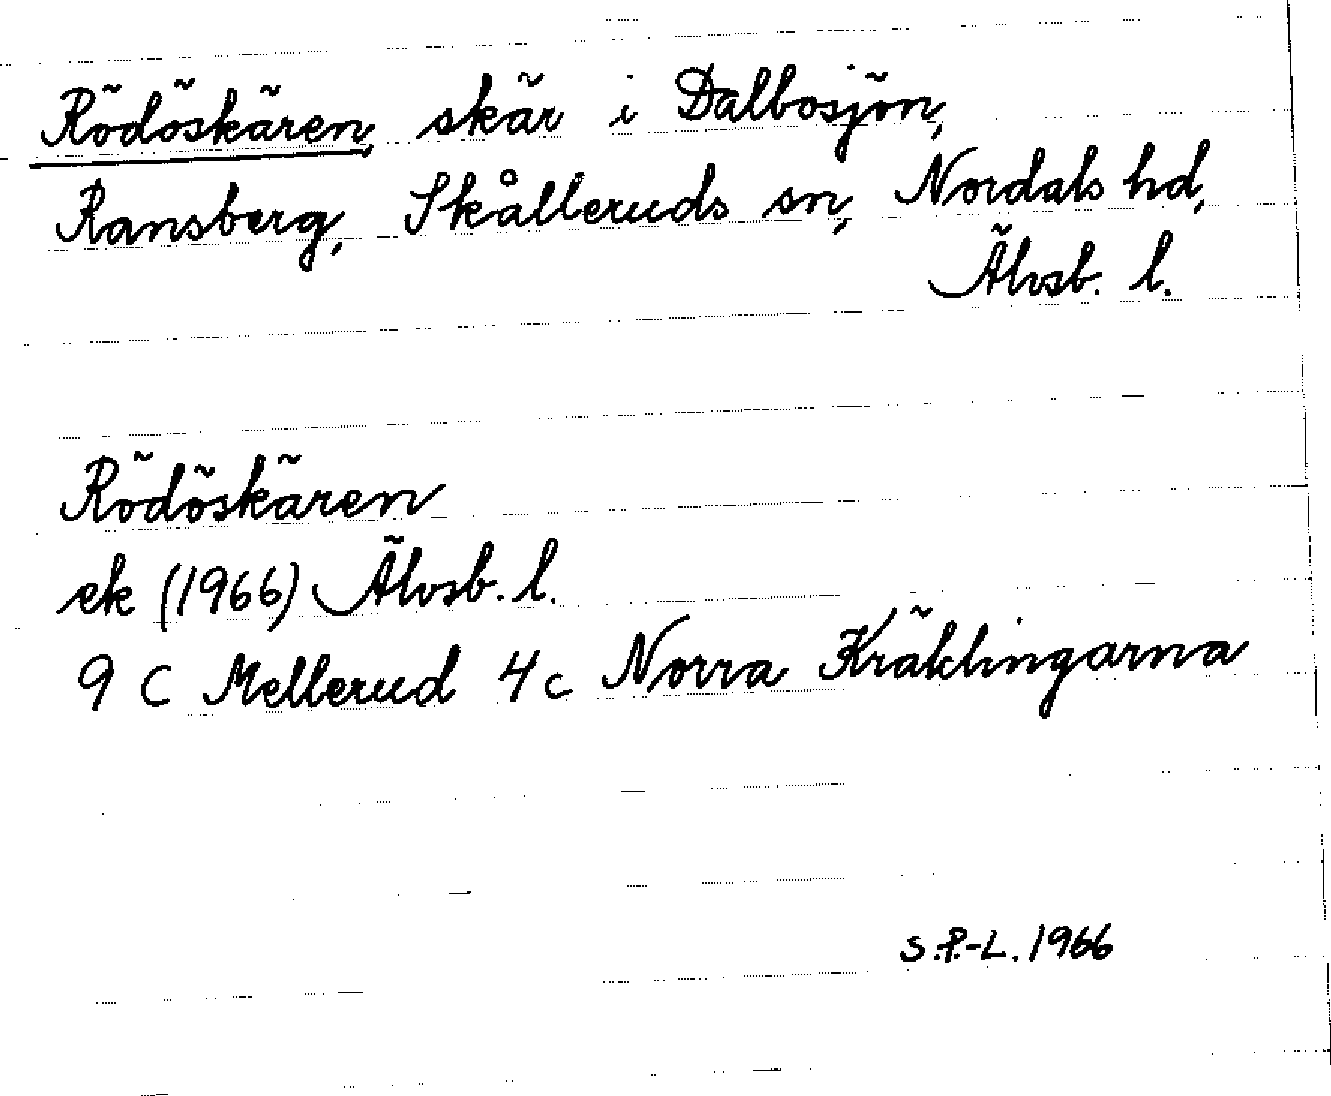 Rödöskären, skär i Dalbosjön,
Ransberg, Skålleruds sn, Nordals hd,
Älvsb. l.
Rödöskären
ek (1966) Älvsb. l.
9 C Mellerud 4 c Norra Kräklingarna
S.P.-L. 1966